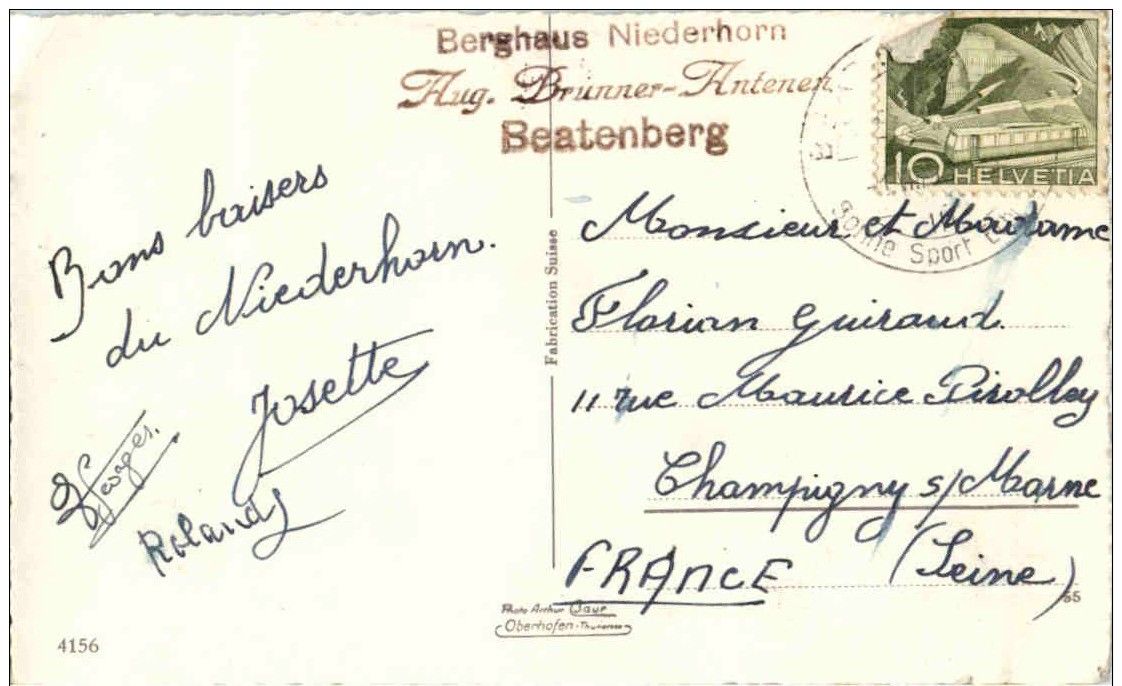 Berghaus Niederhorn
Aug. Brunner-Antenen
Beatenberg
10 HELVETIA
Sonne Sport
Bons baisers
du Niederhorn.
Josette
Georges.
Roland
Fabrication Suisse
Monsieur et Madame
Florian Guiraud.
11 rue Maurice Pirolley
Champigny s/Marne
(Seine)
FRANCE
Photo Arthur Baur
Oberhofen-Thunersee
4156